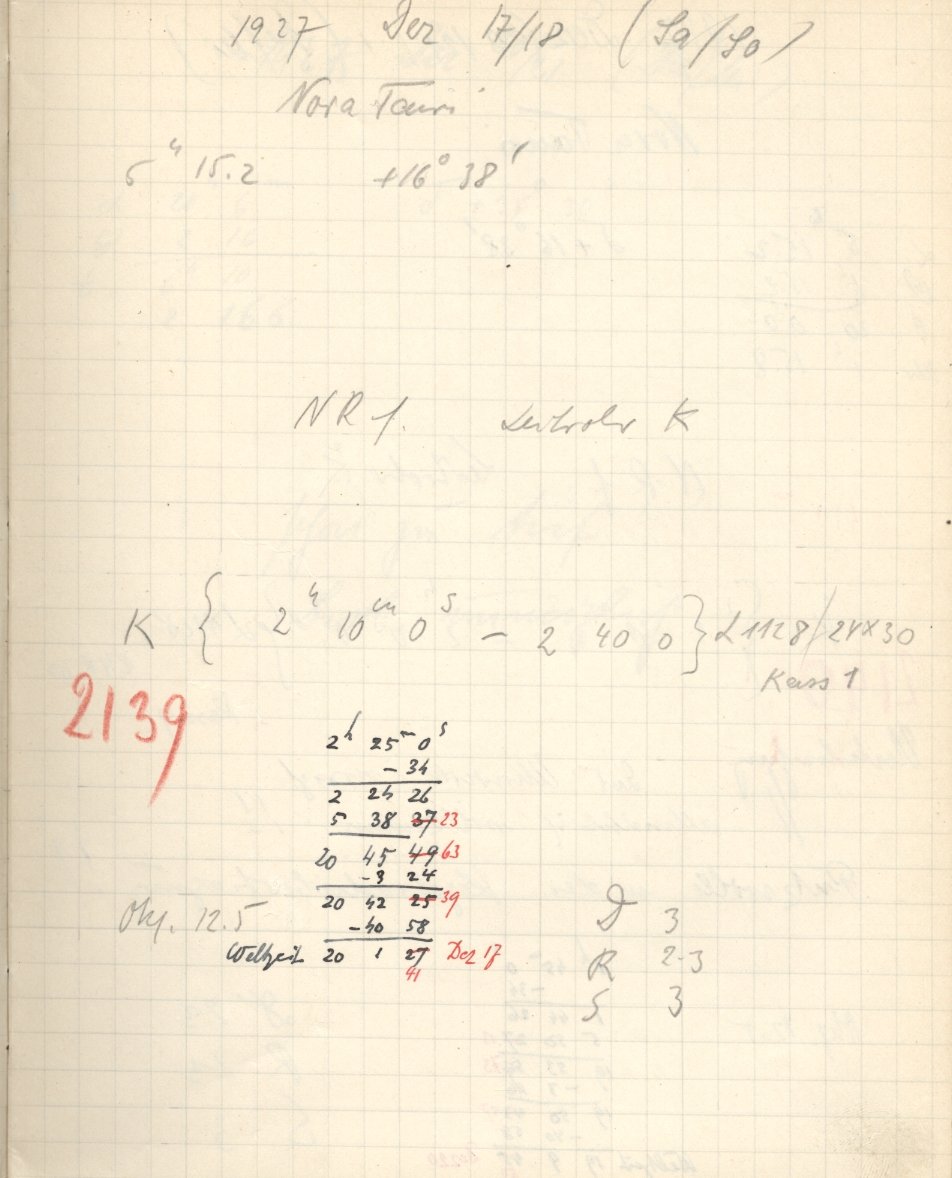 1927 Dez 17/18 (Sa/So)
Nova Tauri
5ʰ 15.2 +16° 38'
NR 1. Leitrohr K
K { 2ʰ 10ᵐ 0ˢ – 2 40 0 } L 1128/24×30
Kass 1
2139
2ʰ 25ᵐ 0ˢ
– 34
2 24 26
5 38 37 23
20 45 49 63
-3 24
20 42 25 39
Okj. 12.5
-40 58
Weltzeit 20 1 27 Dez 17
41
D 3
R 2-3
S 3